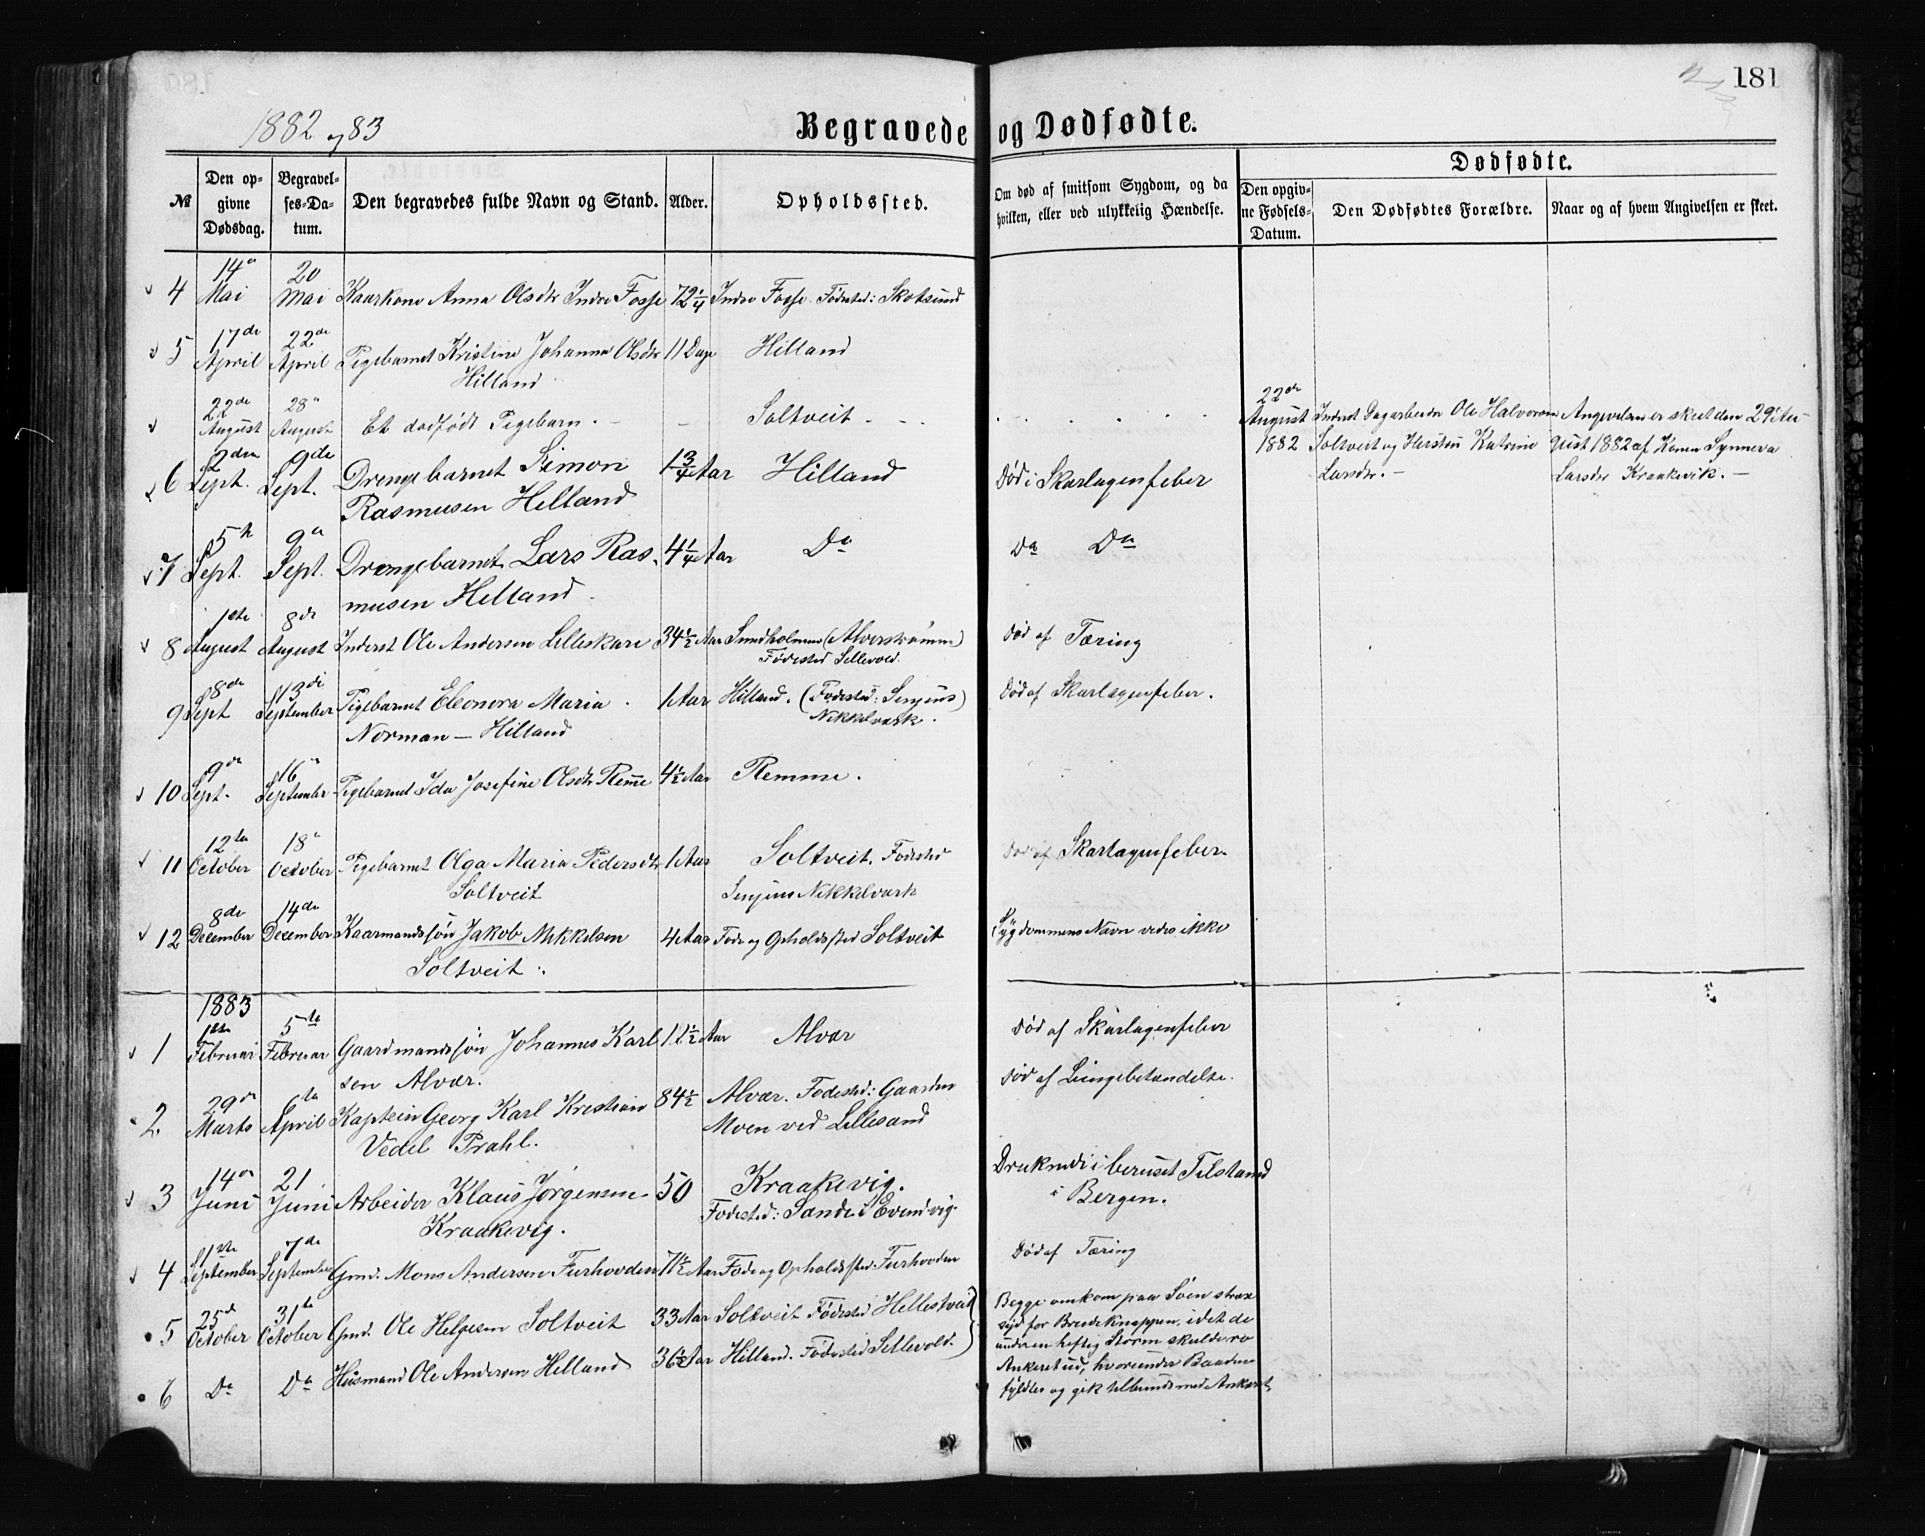 181
1882 og 83
Begravede og Dødfødte.
Dødfødte.
№
Den opgivne Dødsdag.
Begravelses-Datum.
Den begravedes fulde Navn og Stand.
Alder.
Opholdssted.
Om død af smitsom Sygdom, og da hvilken, eller ved ulykkelig Hændelse.
Den opgivne Fødsels-Datum.
Den Dødfødtes Forældre.
Naar og af hvem Angivelsen er skeet.
4 14de Mai 20 Mai Kaarkone Anna Olsdtr Indre Fosse 72 1/4 Indre Fosse. Fødested: Skotsund
5 17de April 22de April Pigebarnet Kristine Johanna Olsdtr 11 Dage Hilland
Hilland
22de August 28 August Et dødfødt Pigebarn. - - Soltveit - - -
22de August 1882
Inderst Dagarbeider Ole Halvorsen
Soltveit og Hustru Katrine
Larsdtr. -
Angivelsen er skeet den 29de Au-
gust 1882 af Konen Synneva
Larsdtr Kraakevik. -
6 2den Sept. 9de Sept. Drengebarnet Simon 1 3/4 Aar Hilland Død i Skarlagenfeber
Rasmusen Helland
7 5te Sept. 9de Sept. Drengebarnet Lars Ras- 4 1/4 Aar Do Do Do
musen Helland
8 1ste August 8de August Inderst Ole Andersen Lilleskare 34 1/2 Aar Smedholmen (Alverstrømmen) Død af Tæring
Fødested Sellevold.
9 8de Sept 13de September Pigebarnet Eleonora Maria 1 Aar Hilland. (Fødested: Senjens Død af Skarlagenfeber.
Norman - Hilland Nikkelværk.)
10 9de Sept. 16 September Pigebarnet Ida Josefine Olsdtr Remme 4 1/2 Aar Remme.
11 12te October 18 October Pigebarnet Olga Maria Pedersdtr 1 Aar Soltveit. Fødested Død af Skarlagenfeber.
Soltveit Senjens Nikkelværk
12 8de December 14de December Kaarmandssøn Jakob Mikkelsen 4 Aar Føde og Opholdssted Soltveit Sygdommens Navn vides ikke
Soltveit.
1883
1 1ste Februar 5te Februar Gaardmandssøn Johannes Karl- 12 1/2 Aar Alvær Død af Skarlagenfeber
sen Alvær.
2 29de Marts 6te April Kaptein Georg Karl Kristian 84 1/2 Alvær. Fødested: Gaarden Død af Lungebetændelse.
Vedel Prahl. Moen ved Lillesand
3 14de Juni 21 Juni Arbeider Klaus Jørgensen 50 Kraakevig. Druknede i beruset Tilstand
Kraakevig. Fødested: Sande i Evendvig. i Bergen.
4 1ste September 7de September Gmd. Mons Andersen Furhovden 71 1/2 Aar Føde og Opholdssted Furhovden Død af Tæring
5 25de October 31te October Gmd. Ole Helgesen Soltveit 33 Aar Soltveit Fødested Hellestveit
6 Do Do Husmand Ole Andersen Helland 36 1/2 Aar Hilland. Fødested Sellevold.
Begge omkom paa Søen strax
syd for Bredeknappen, idet de
under en heftig Storm skulde ro
Ankeret ud, hvorunder Baaden
fyldtes og gik tilbunds med Ankeret.